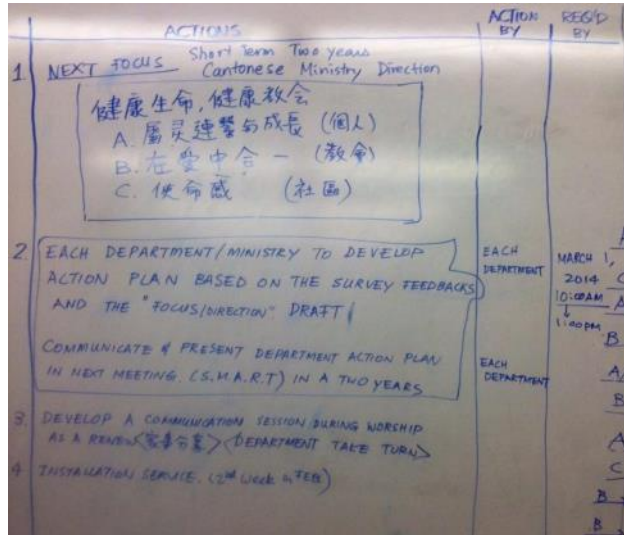 ACTIONS
ACTION BY
REQ'D BY
Short Term Two years
1. NEXT FOCUS Cantonese Ministry Direction
健康生命, 健康教会
A. 屬灵連繫与成長 (個人)
B. 在愛中合一 (教會)
C. 使命感 (社區)
2. EACH DEPARTMENT/MINISTRY TO DEVELOP
ACTION PLAN BASED ON THE SURVEY FEEDBACKS
AND THE "FOCUS/DIRECTION" DRAFT
EACH DEPARTMENT
MARCH 1,
2014
10:00AM
↓
1:00pm
COMMUNICATE & PRESENT DEPARTMENT ACTION PLAN
IN NEXT MEETING. (S.M.A.R.T) IN A TWO YEARS
EACH DEPARTMENT
3. DEVELOP A COMMUNICATION SESSION DURING WORSHIP
AS A RENEW <家事分享> <DEPARTMENT TAKE TURN>
4. INSTALLATION SERVICE. (2nd week in FEB)
C
A
B
A
B
A
C
B
B